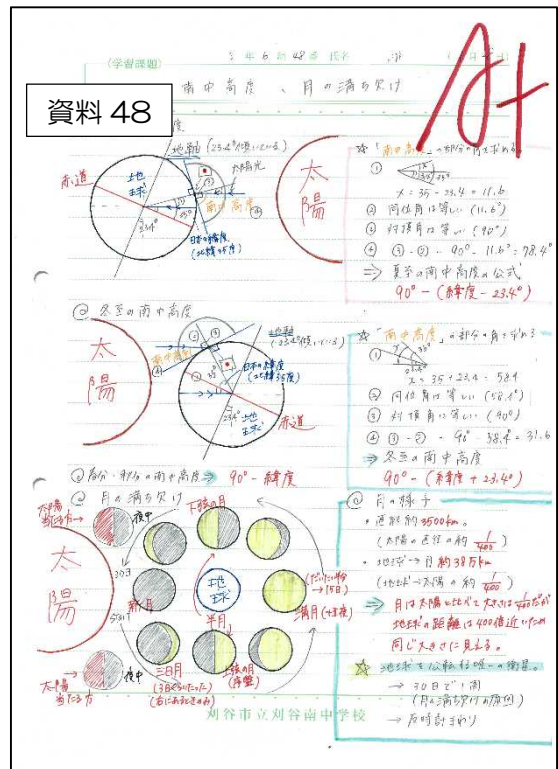 (学習課題)
3年6組48番 氏名
南中高度、月の満ち欠け
A+
資料 48
地軸 (23.4°傾いている)
太陽光
赤道
地球
南中高度
23.4°
35°
日本の緯度
(北緯35度)
太陽
☆「南中高度」の部分の角を求める。
①
x = 35 - 23.4 = 11.6
② 同位角は等しい (11.6°)
③ 対頂角は等しい (90°)
④ ③-② = 90° - 11.6° = 78.4°
⇒ 夏至の南中高度の公式
90° - (緯度 - 23.4°)
◎ 冬至の南中高度
太陽
南中高度
地軸
(23.4°傾いている)
日本の緯度
(北緯35度)
35°
23.4°
地球
赤道
☆「南中高度」の部分の角を求める
①
x = 35 + 23.4 = 58.4
② 同位角は等しい (58.4°)
③ 対頂角は等しい (90°)
④ ③-② = 90° - 58.4° = 31.6
⇒ 冬至の南中高度
90° - (緯度 + 23.4°)
◎ 春分・秋分の南中高度 ⇒ 90° - 緯度
◎ 月の満ち欠け
太陽
当たる方→
夜中
下弦の月
太陽
30日
新月
地球
半月
(だいたい半分
→15日)
満月 (十五夜)
三日月
(3日ぐらいたった)
(右にあるときのみ)
上弦の月
夜中
太陽→
当たる方
◎ 月の様子
・直径約3500km。
(太陽の直径の約 1/400)
・地球→月 約38万km
(地球→太陽の約 1/400)
⇒ 月は太陽と比べて大きさは1/400だが
地球の距離は400倍近いため
同じ大きさに見える。
☆ 地球を公転する唯一の衛星。
→ 30日で1周
(月の満ち欠けの原因)
→ 反時計まわり
刈谷市立刈谷南中学校